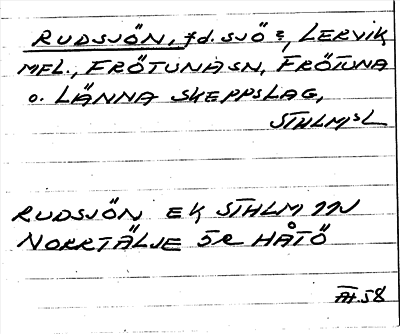 RUDSJÖN, fd. SJÖ?, LERVIK
MFL., FRÖTUNA SN, FRÖTUNA
O. LÄNNA SKEPPSLAG,
STHLMSL
RUDSJÖN EK STHLM 11J
NORRTÄLJE 5R HÅTÖ
58